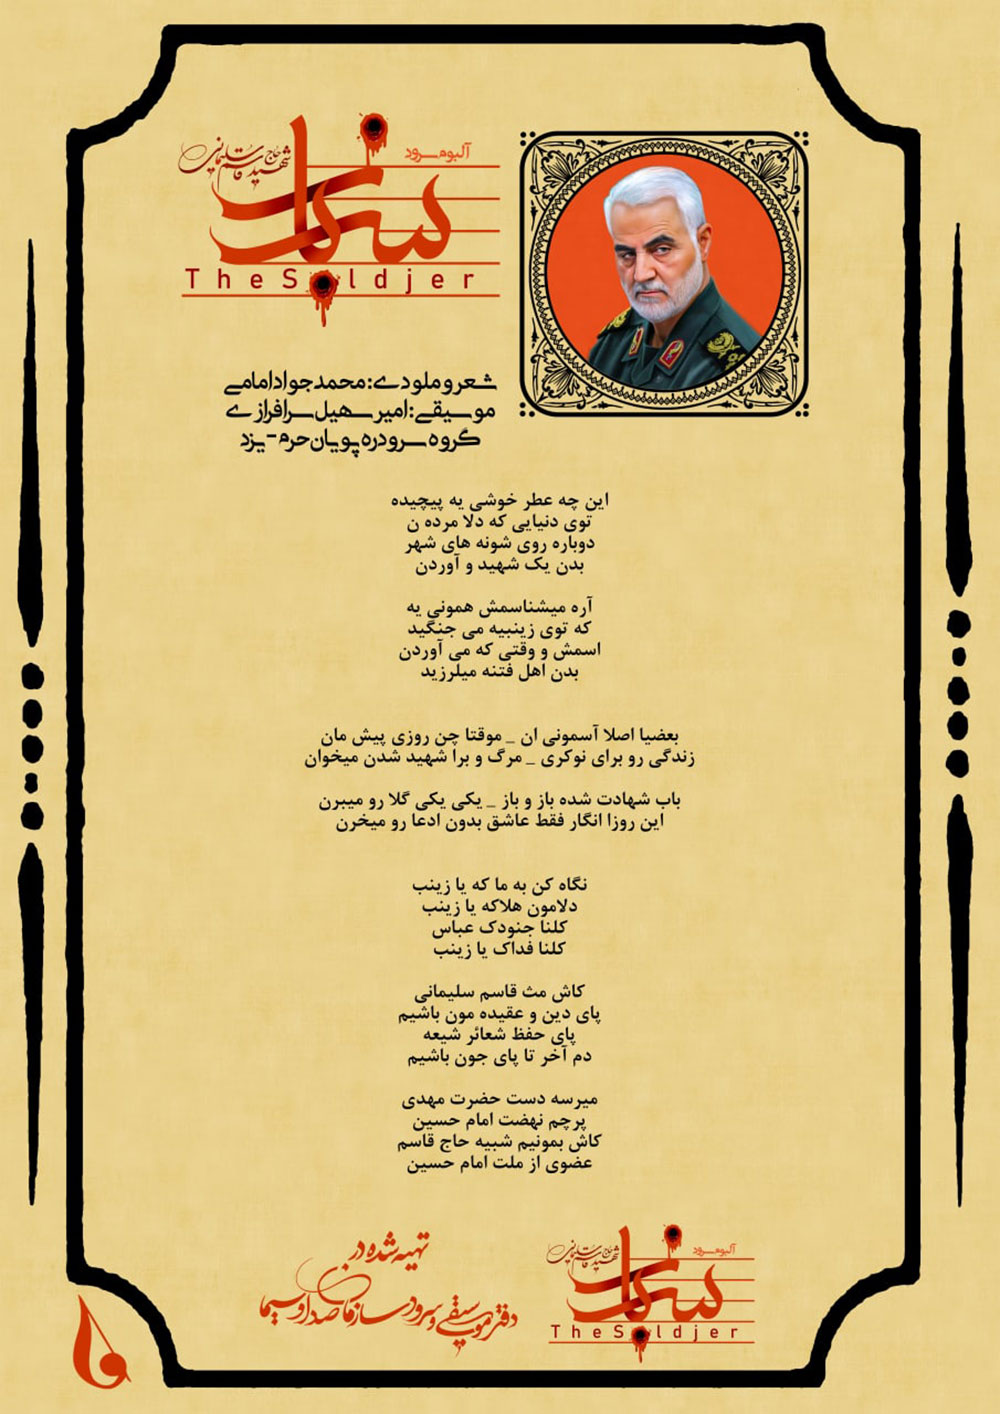 آلبوم سرود
سرباز
شهید حاج قاسم سلیمانی
TheSoldjer
شعر و ملودی: محمدجواد امامی
موسیقی: امیر سهیل سرافرازی
گروه سرود ره پویان حرم - یزد
این چه عطر خوشی یه پیچیده
توی دنیایی که دلا مرده ن
دوباره روی شونه های شهر
بدن یک شهید و آوردن
آره میشناسمش همونی یه
که توی زینبیه می جنگید
اسمش و وقتی که می آوردن
بدن اهل فتنه میلرزید
بعضیا اصلا آسمونی ان _ موقتا چن روزی پیش مان
زندگی رو برای نوکری _ مرگ و برا شهید شدن میخوان
باب شهادت شده باز و باز _ یکی یکی گلا رو میبرن
این روزا انگار فقط عاشق بدون ادعا رو میخرن
نگاه کن به ما که یا زینب
دلامون هلاکه یا زینب
کلنا جنودک عباس
کلنا فداک یا زینب
کاش مث قاسم سلیمانی
پای دین و عقیده مون باشیم
پای حفظ شعائر شیعه
دم آخر تا پای جون باشیم
میرسه دست حضرت مهدی
پرچم نهضت امام حسین
کاش بمونیم شبیه حاج قاسم
عضوی از ملت امام حسین
آلبوم سرود
سرباز
شهید حاج قاسم سلیمانی
TheSoldjer
تهیه شده در
دفتر موسیقی و سرود سازمان صدا و سیما